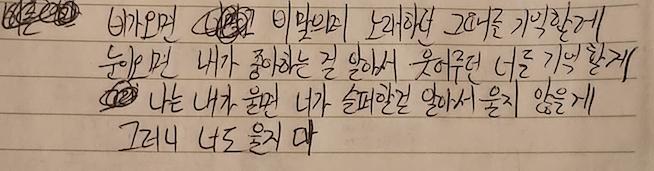 비가오면 비 맞으며 노래하던 그대를 기억할게
눈이오면 내가 좋아하는 걸 알아서 웃어주던 너를 기억할게
나는 내가 울면 너가 슬퍼할걸 알아서 울지 않을게
그러니 너도 울지 마